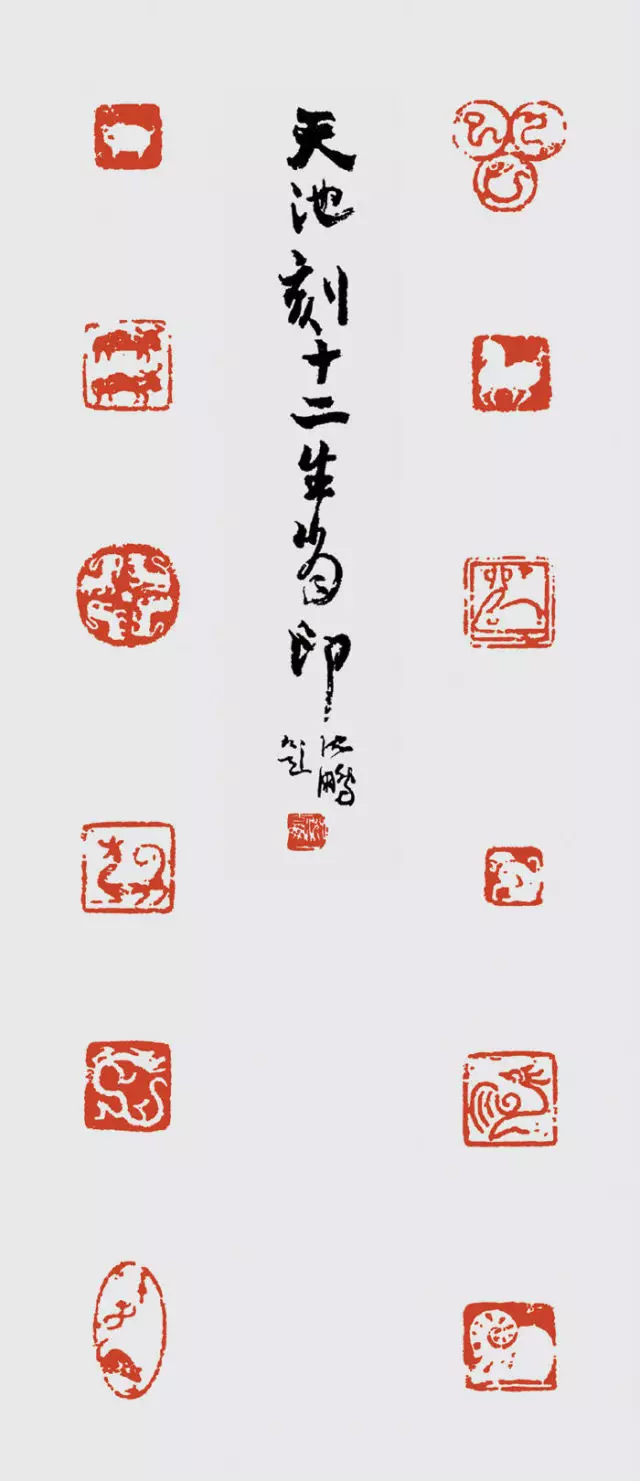 天池刻十二生肖印
沈鹏
题